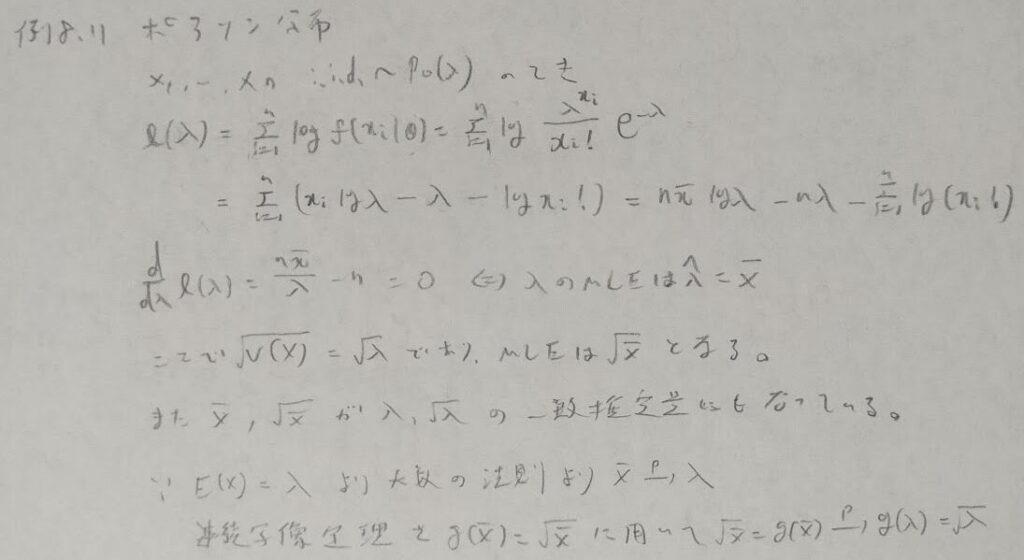 例8.11 ポアソン分布
x₁, …, xₙ i.i.d. ~ Po(λ) のとき
ℓ(λ) = Σ_{i=1}^{n} log f(xᵢ|θ) = Σ_{i=1}^{n} log λ^{xᵢ}/xᵢ! e^{-λ}
= Σ_{i=1}^{n} (xᵢ log λ − λ − log xᵢ!) = nx̄ log λ − nλ − Σ_{i=1}^{n} log(xᵢ!)
d/dλ ℓ(λ) = nx̄/λ − n = 0 ⇔ λのMLEはλ̂ = x̄
ここで √V(X) = √λ であり、MLEは √x̄ となる。
また x̄, √x̄ が λ, √λ の一致推定量にもなっている。
∵ E(X) = λ より大数の法則より x̄ →ᵖ λ
連続写像定理を g(x̄) = √x̄ に用いて √x̄ = g(x̄) →ᵖ g(λ) = √λ